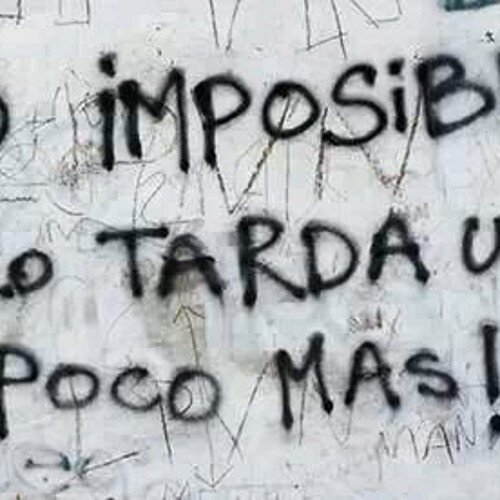 O iMPOSiB
LO TARDA U
POCO MAS!